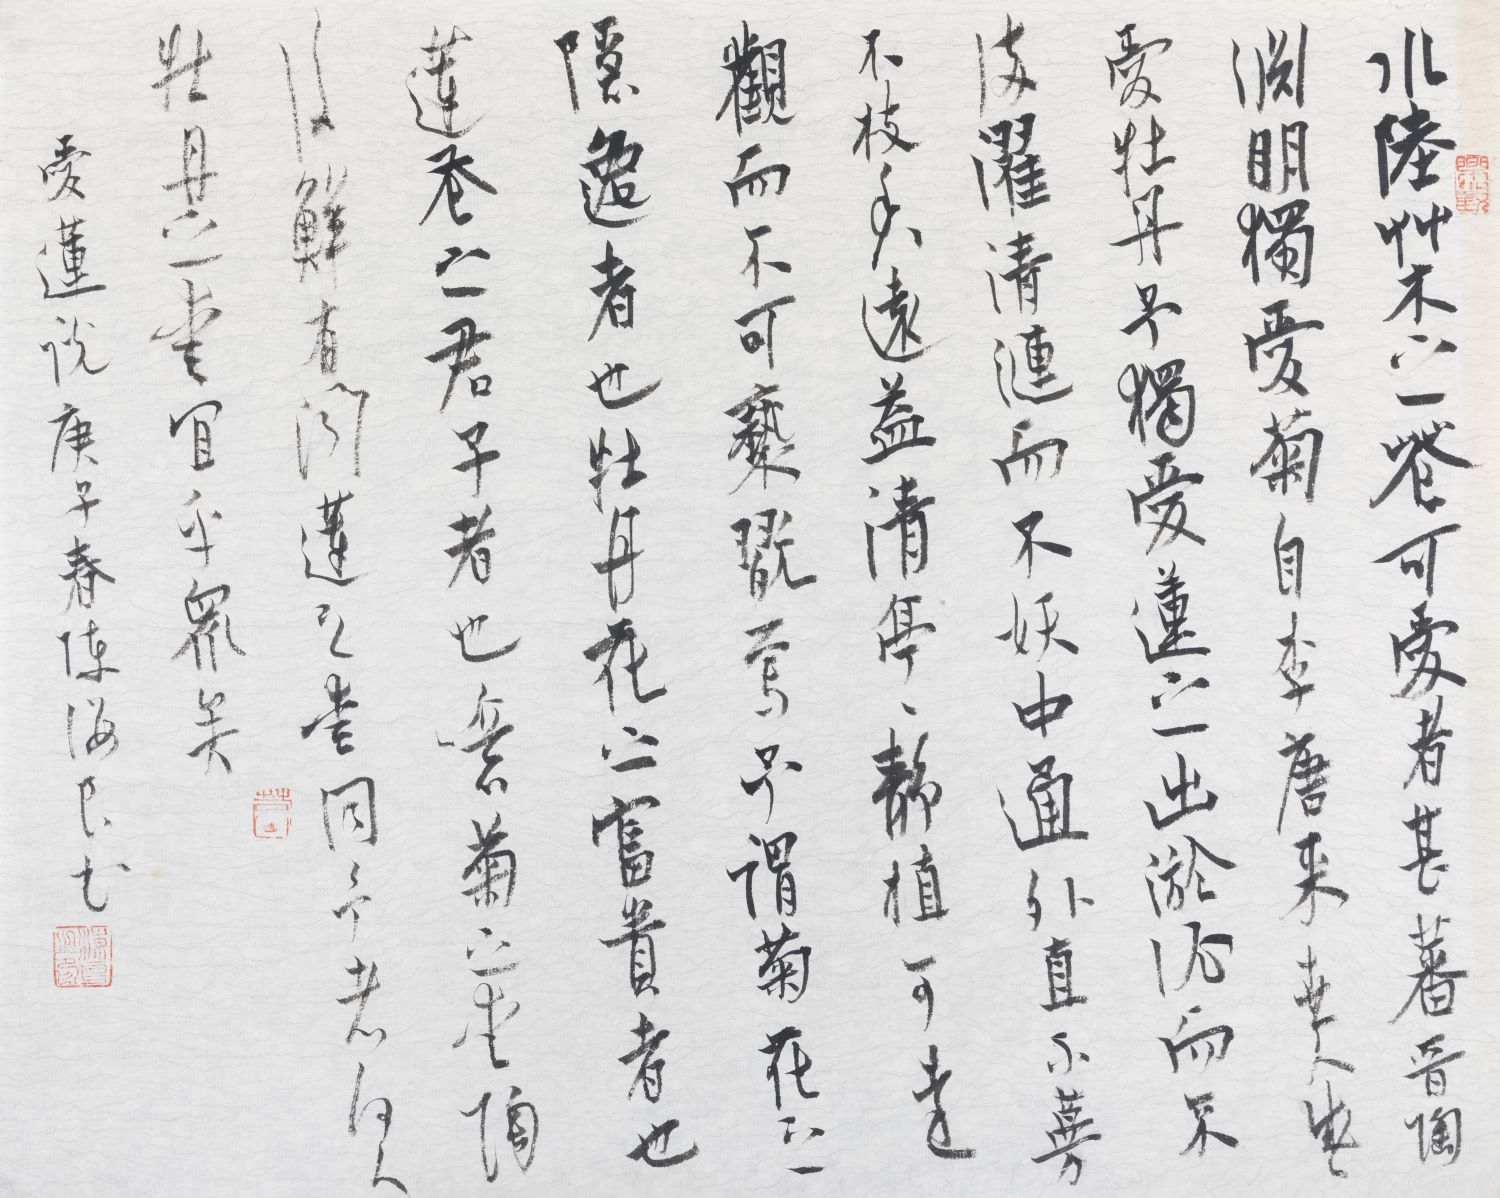 水陸艸木之花可愛者甚蕃晋陶
淵明獨愛菊自李唐来世人盛
愛牡丹予獨愛蓮之出淤泥而不
染濯清漣而不妖中通外直不蔓
不枝香遠益清亭、静植可遠
觀而不可褻翫焉予謂菊花之
隱逸者也牡丹花之富貴者也
蓮花之君子者也噫菊之愛陶
後鮮有聞蓮之愛同予者何人
牡丹之愛宜乎眾矣
愛蓮説庚子春陳海良書